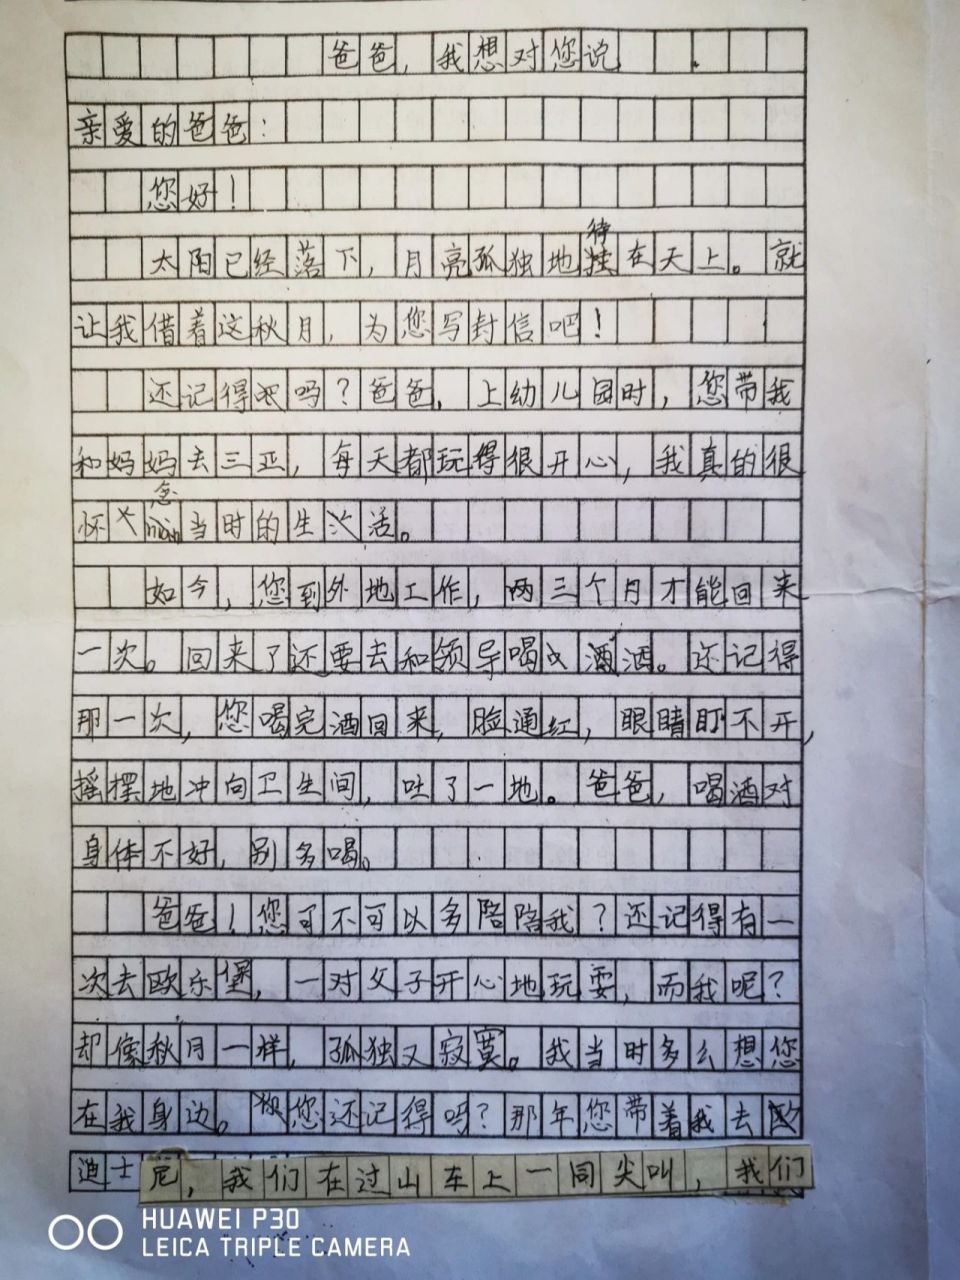 爸爸，我想对您说
亲爱的爸爸：
您好！
待
太阳已经落下，月亮孤独地挂在天上。就
让我借着这秋月，为您写封信吧！
还记得吧吗？爸爸，上幼儿园时，您带我
和妈妈去三亚，每天都玩得很开心，我真的很
念
怀niàn当时的生活。
如今，您到外地工作，两三个月才能回来
一次。回来了还要去和领导喝酒。还记得
那一次，您喝完酒回来，脸通红，眼睛盯不开，
摇摆地冲向卫生间，吐了一地。爸爸，喝酒对
身体不好，别多喝。
爸爸！您可不可以多陪陪我？还记得有一
次去欧乐堡，一对父子开心地玩耍，而我呢？
却像秋月一样，孤独又寂寞。我当时多么想您
在我身边。您还记得吗？那年您带着我去
迪士尼，我们在过山车上一同尖叫，我们
HUAWEI P30
LEICA TRIPLE CAMERA